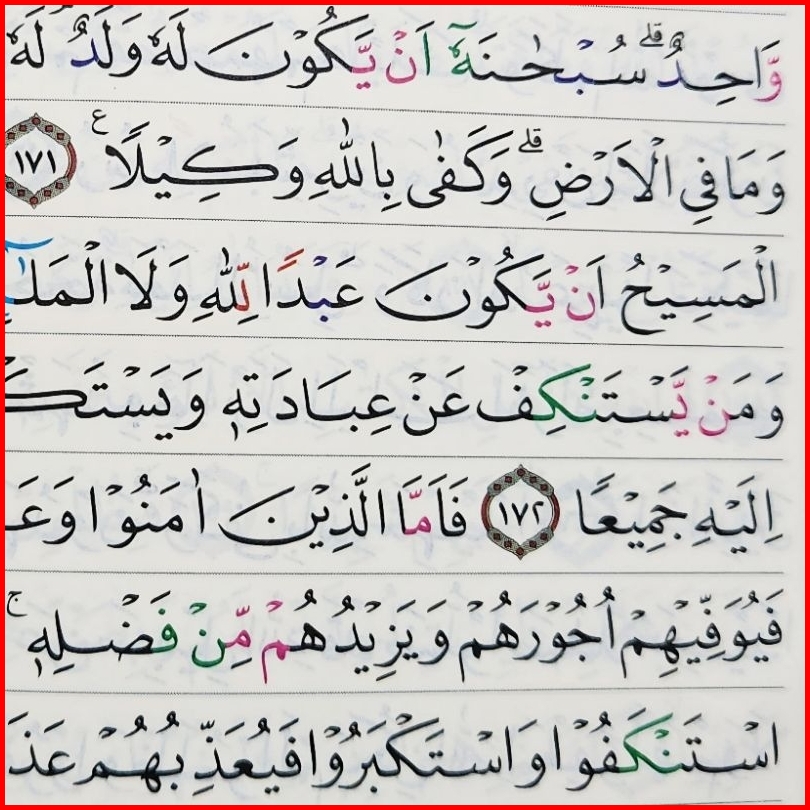 وَّاحِدٌ ۗ سُبْحٰنَهٗٓ اَنْ يَّكُوْنَ لَهٗ وَلَدٌ ۘ لَهٗ
وَمَا فِى الْاَرْضِ ۗ وَكَفٰى بِاللّٰهِ وَكِيْلًا ࣖ ١٧١
الْمَسِيْحُ اَنْ يَّكُوْنَ عَبْدًا لِّلّٰهِ وَلَا الْمَلٰۤ
وَمَنْ يَّسْتَنْكِفْ عَنْ عِبَادَتِهٖ وَيَسْتَكـ
اِلَيْهِ جَمِيْعًا ١٧٢ فَاَمَّا الَّذِيْنَ اٰمَنُوْا وَعَـ
فَيُوَفِّيْهِمْ اُجُوْرَهُمْ وَيَزِيْدُهُمْ مِّنْ فَضْلِهٖ ۚ
اسْتَنْكَفُوْا وَاسْتَكْبَرُوْا فَيُعَذِّبُهُمْ عَذَ